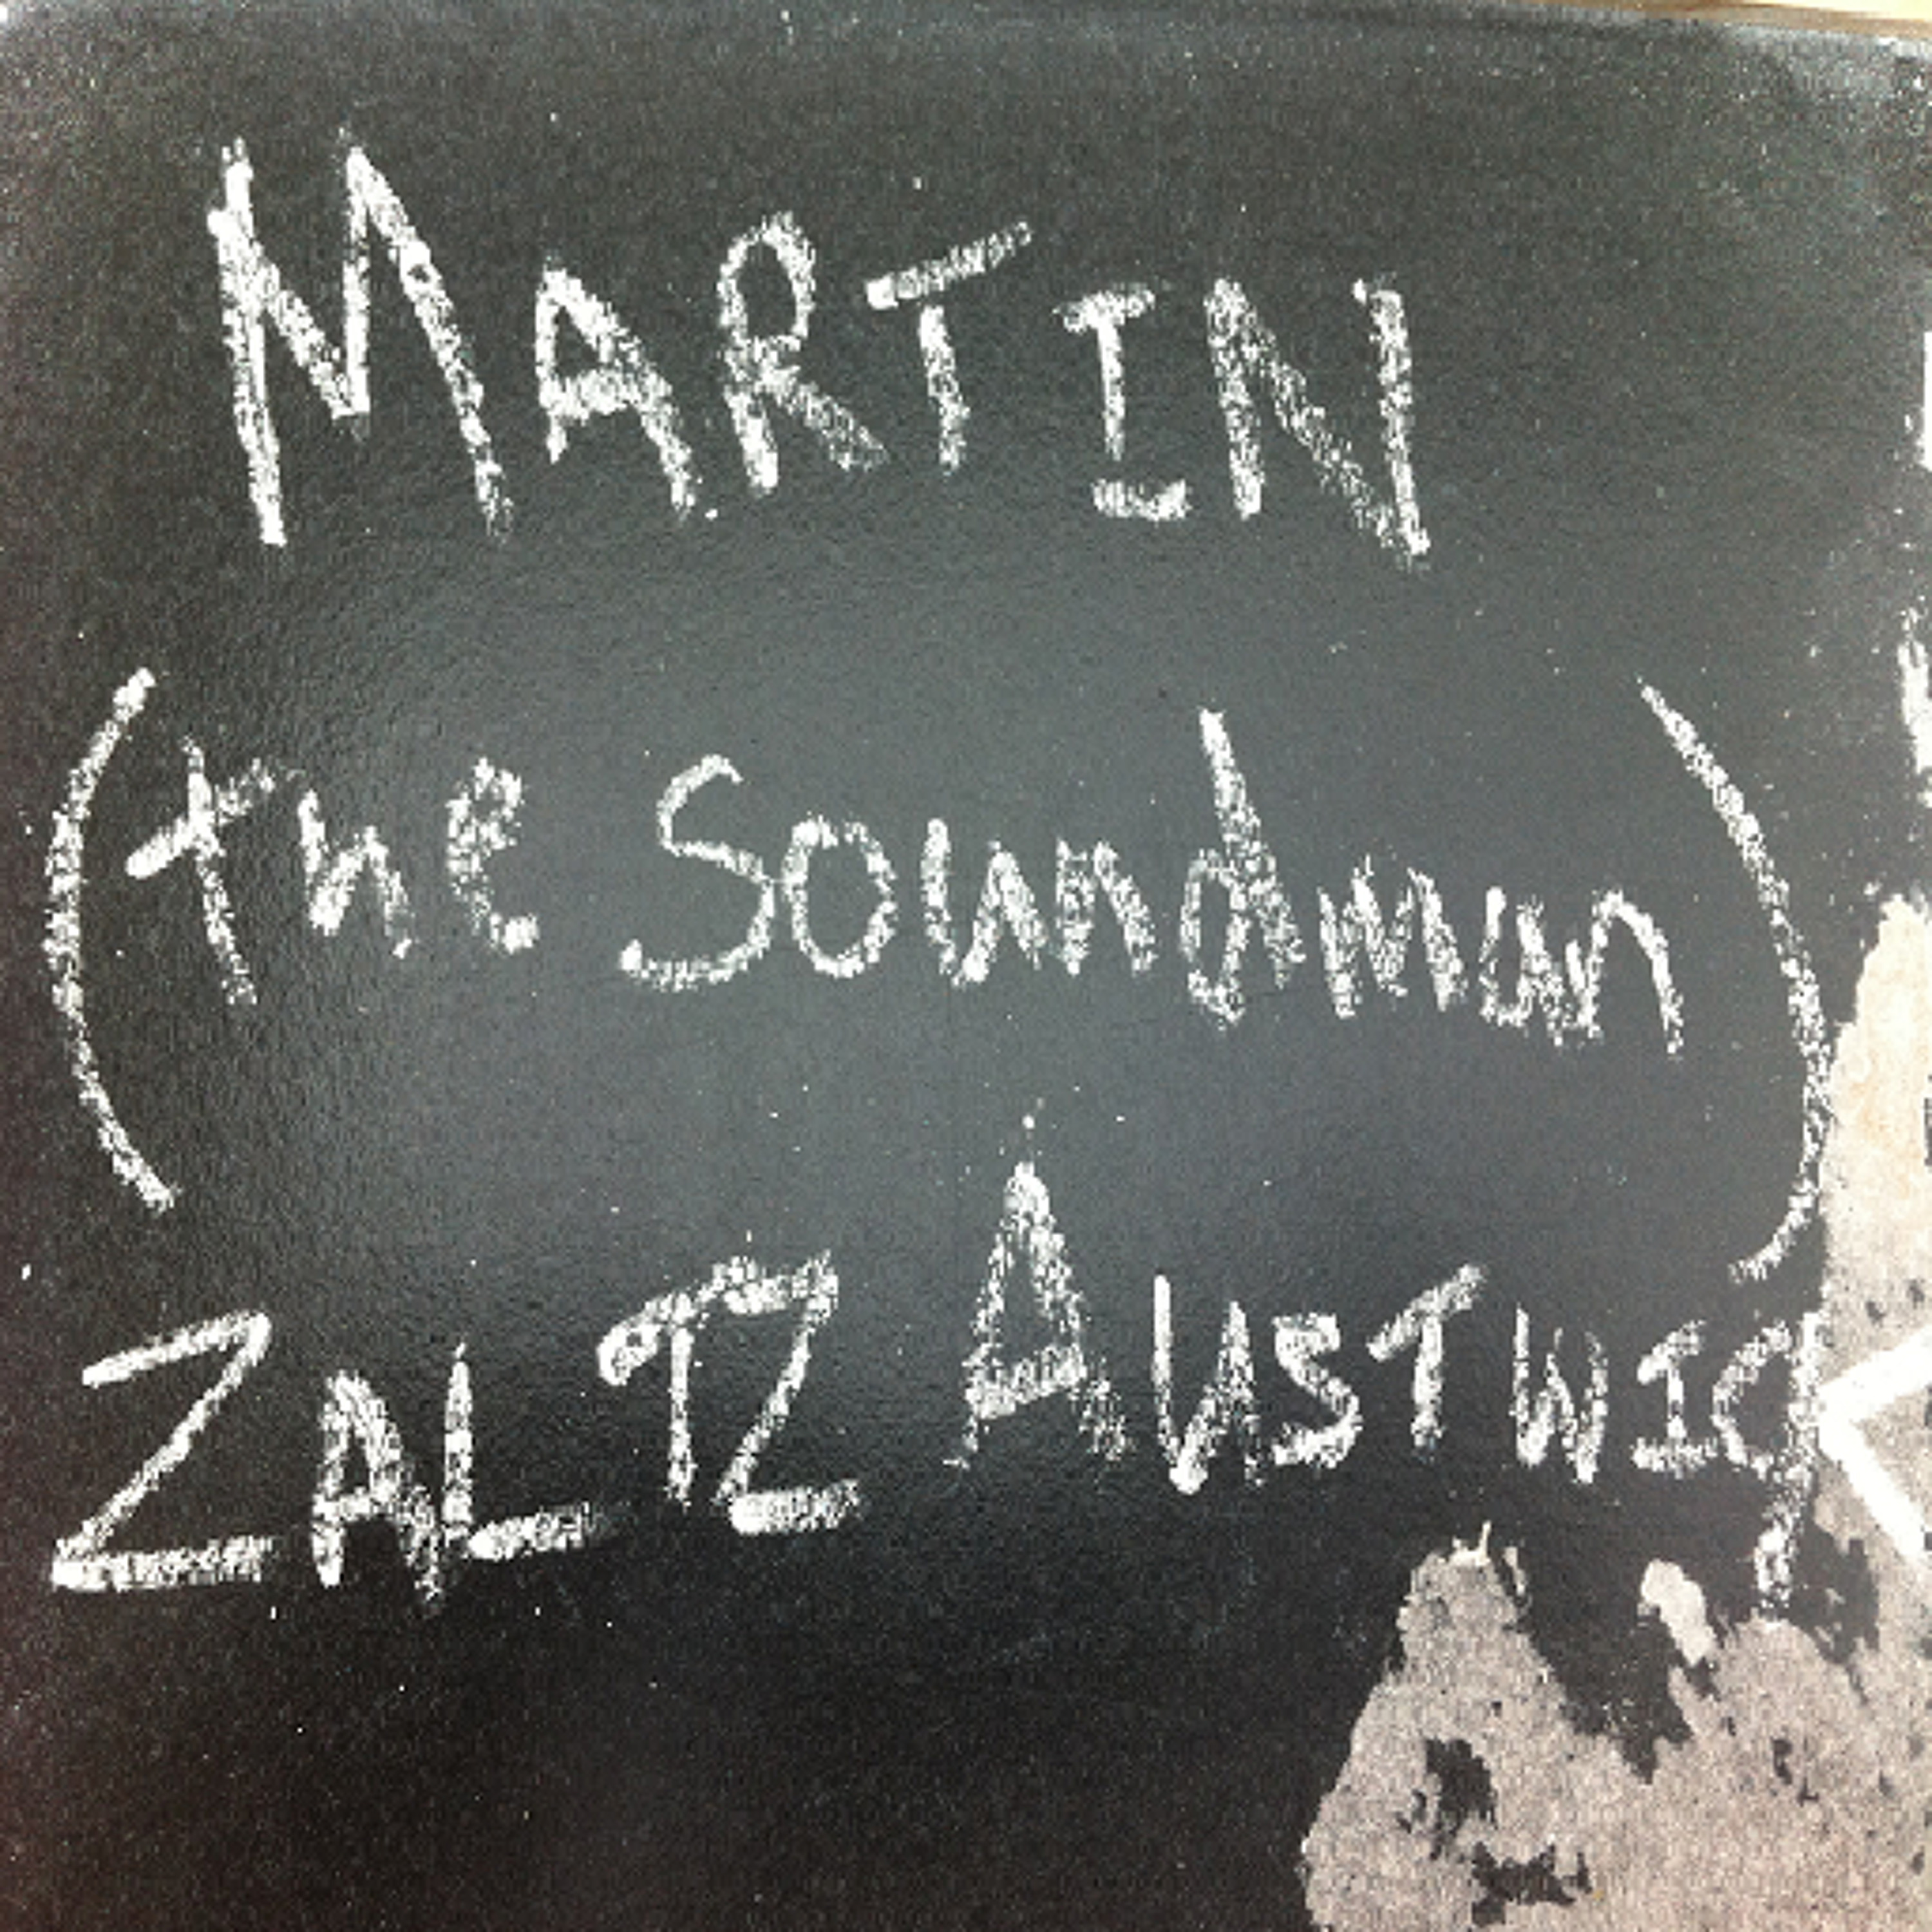 MARTIN
(the Soundman)
ZALTZ AUSTWICK